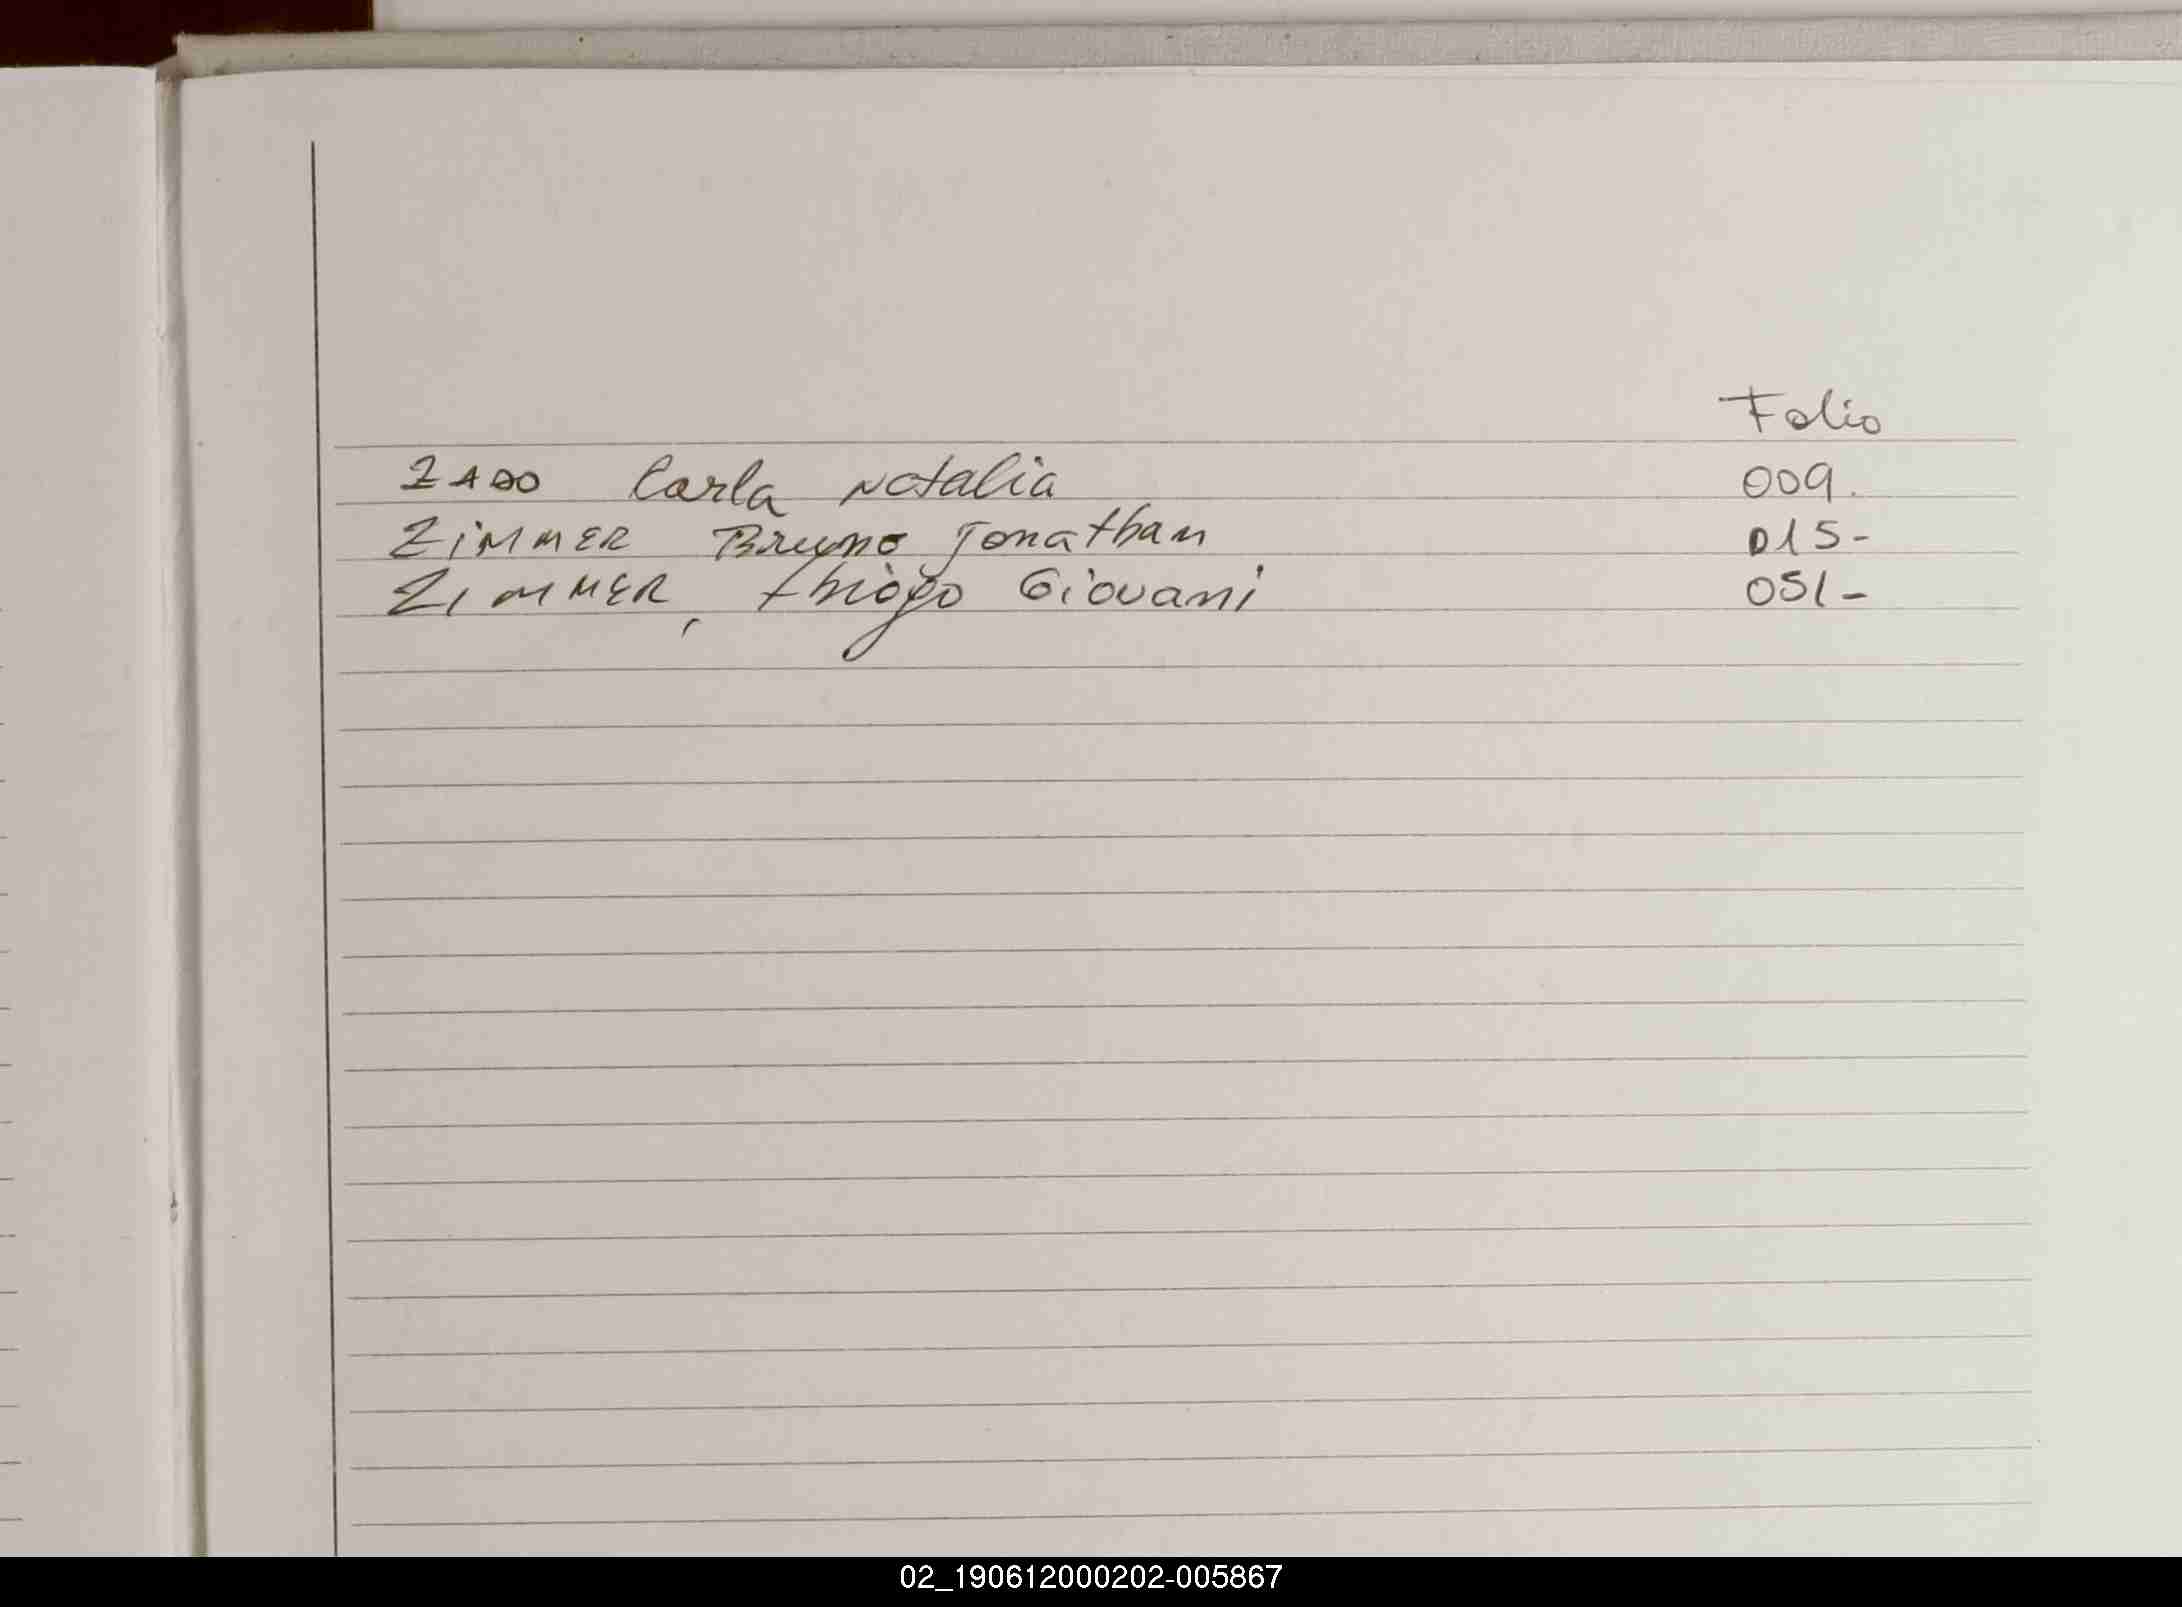 Folio
ZADO Carla Natalia 009.
ZiMMER Bruno Jonathan 015-
ZIMMER, thiago Giovani 051-
02_190612000202-005867